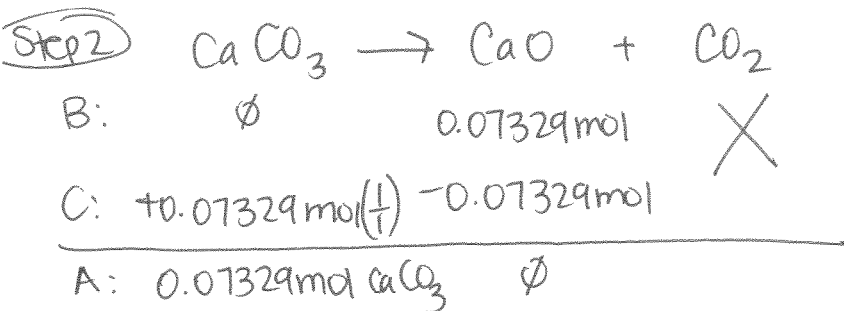 Step 2 CaCO₃ → CaO + CO₂
B: ∅ 0.07329 mol X
C: +0.07329 mol(1/1) -0.07329 mol
A: 0.07329 mol CaCO₃ ∅